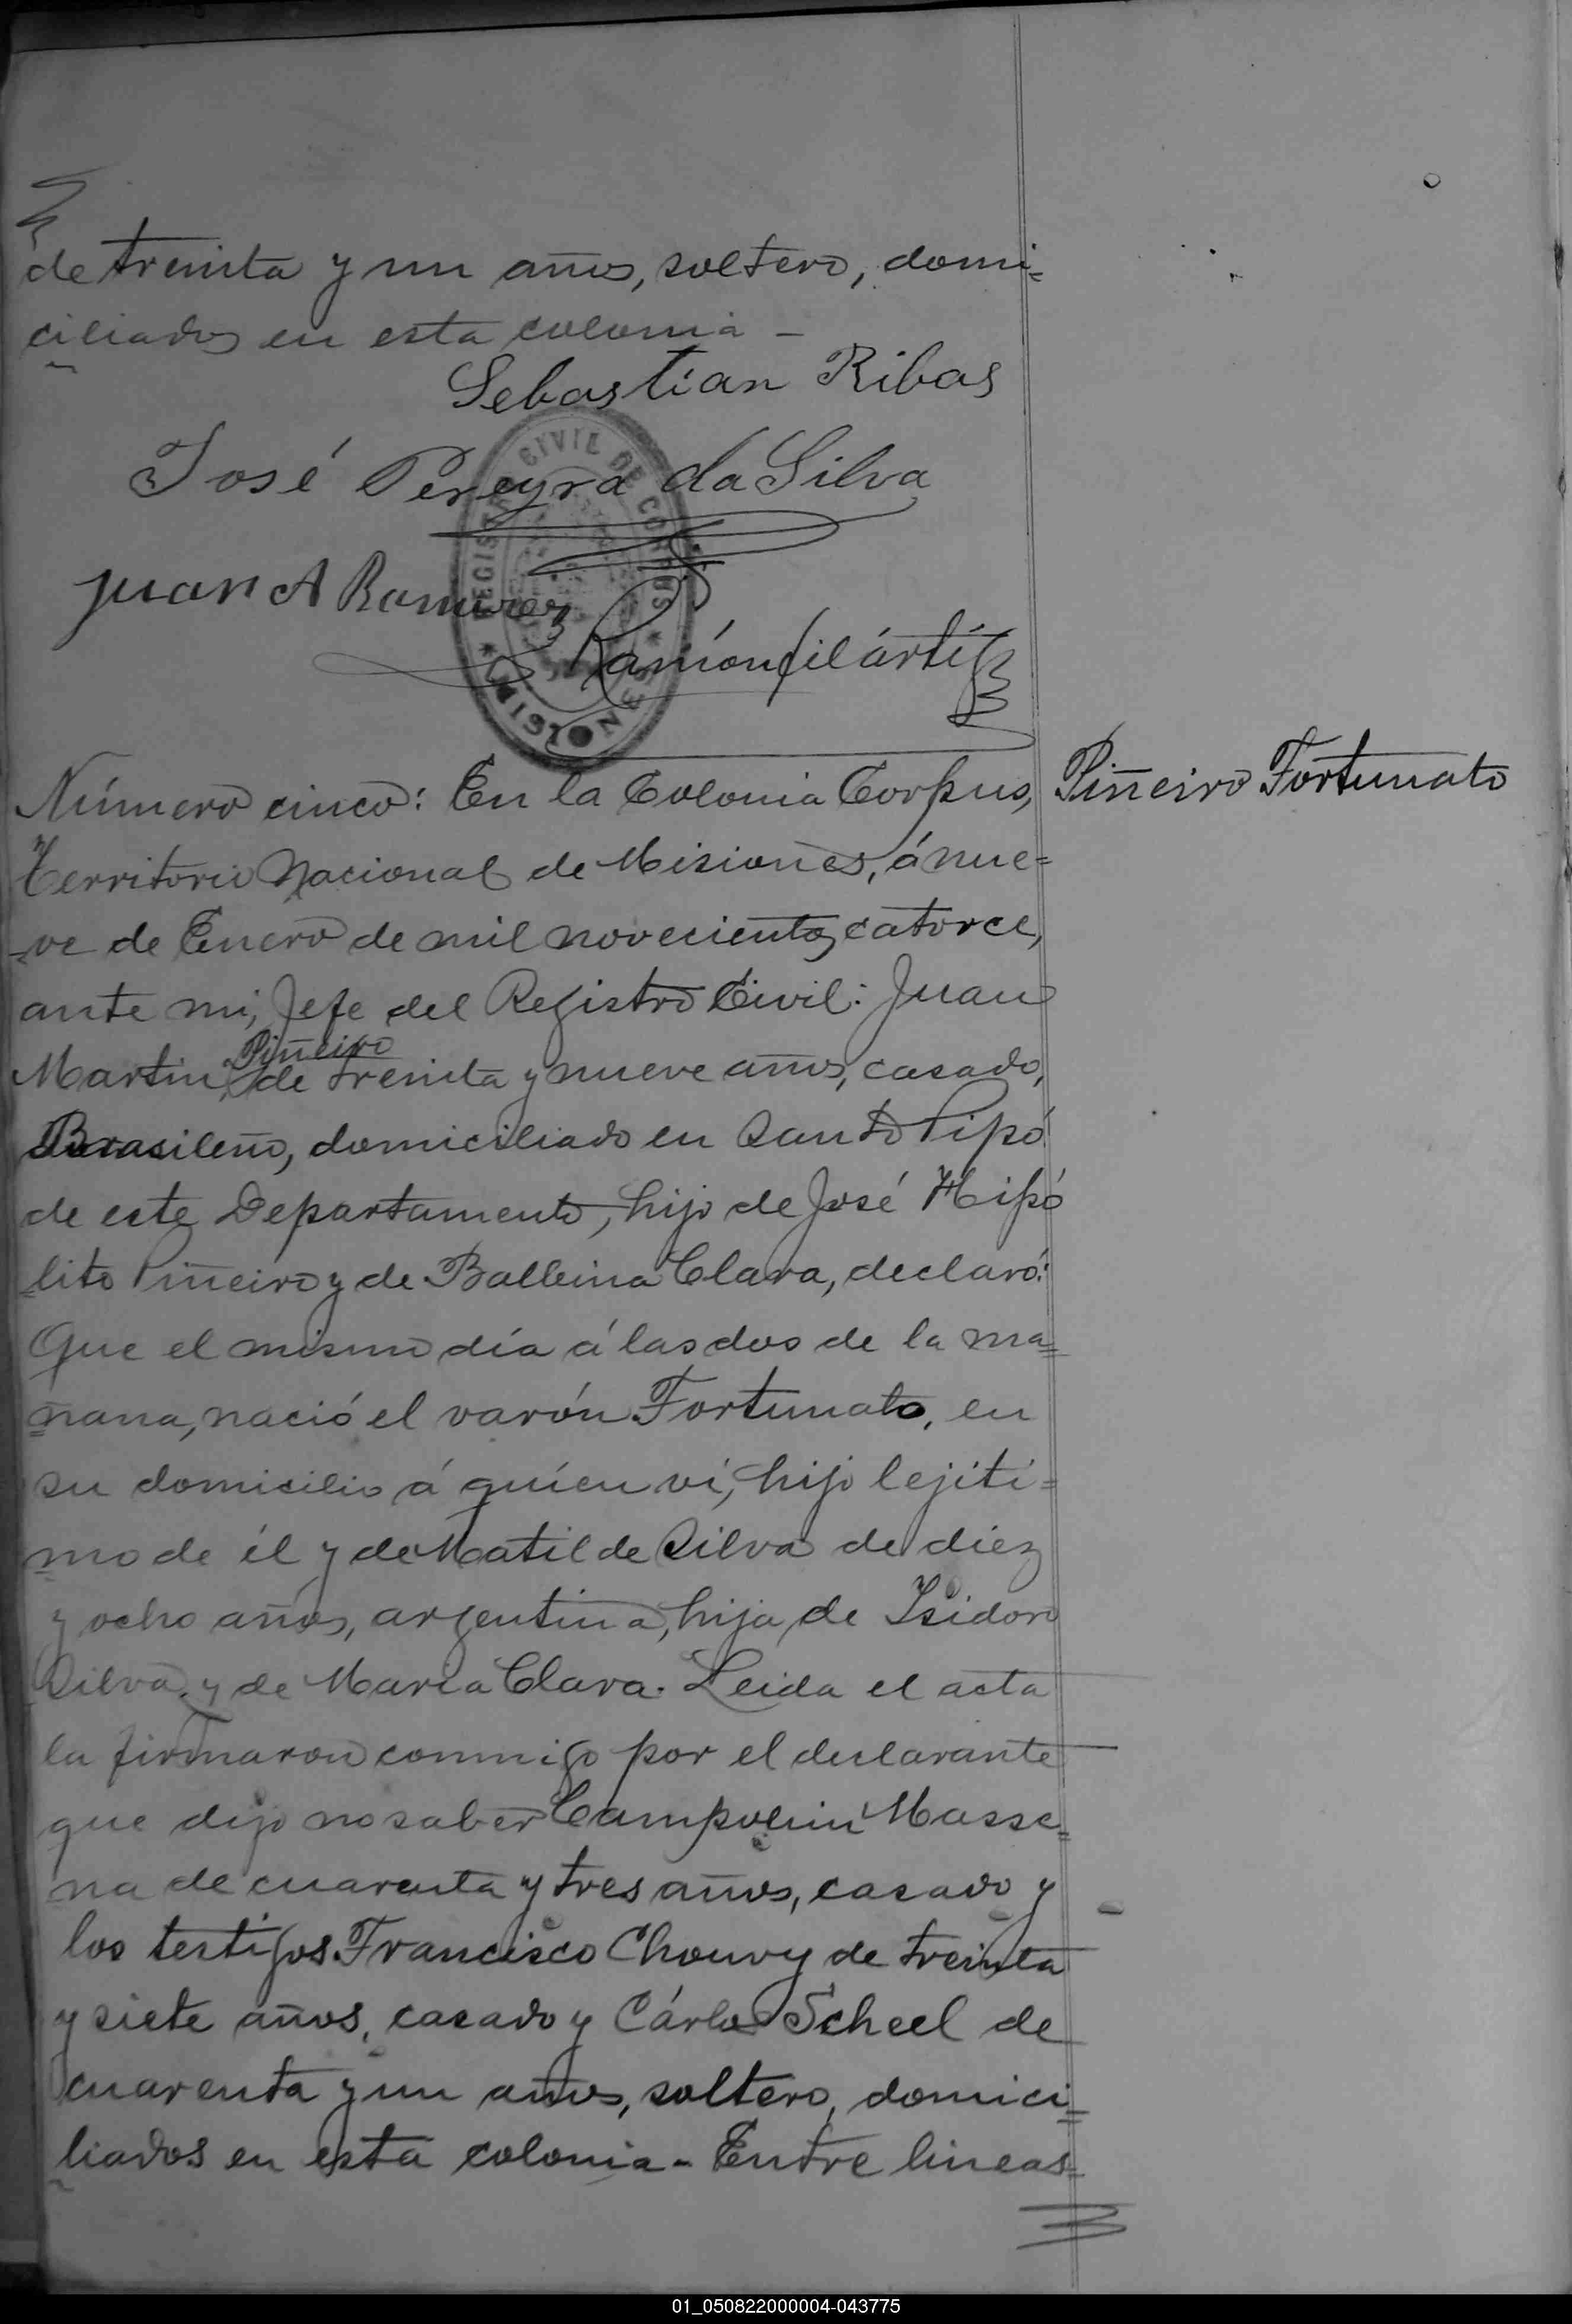 de treinta y un años, soltero, domi=
ciliados en esta colonia -
Sebastian Ribas
José Pereyra da Silva
REGISTRO CIVIL DE CORPUS
* MISIONES *
Juan A Ramirez
Ramón Filártiga
Número cinco: En la Colonia Corpus,
Piñeiro Fortunato
Territorio Nacional de Misiones, á nue=
-ve de Enero de mil novecientos catorce,
ante mi, Jefe del Registro Civil: Juan
Piñeiro
Martin, de treinta y nueve años, casado,
Brasileño, domiciliado en Santo Pipó
de este Departamento, hijo de José Hipó
lito Piñeiro y de Balbina Clara, declaró:
Que el mismo día á las dos de la ma=
ñana, nació el varón Fortunato, en
su domicilio á quíen ví, hijo lejiti=
mo de él y de Matilde Silva de diez
y ocho años, argentina, hija de Isidoro
Silva y de María Clara. Leida el acta
la firmaron conmigo por el declarante
que dijo no saber Campolin Masse=
na de cuarenta y tres años, casado y
los testigos Francisco Chouvy de treinta
y siete años, casado y Cárlos Scheel de
cuarenta y un años, soltero, domici=
liados en esta colonia - Entre lineas=
01_050822000004-043775